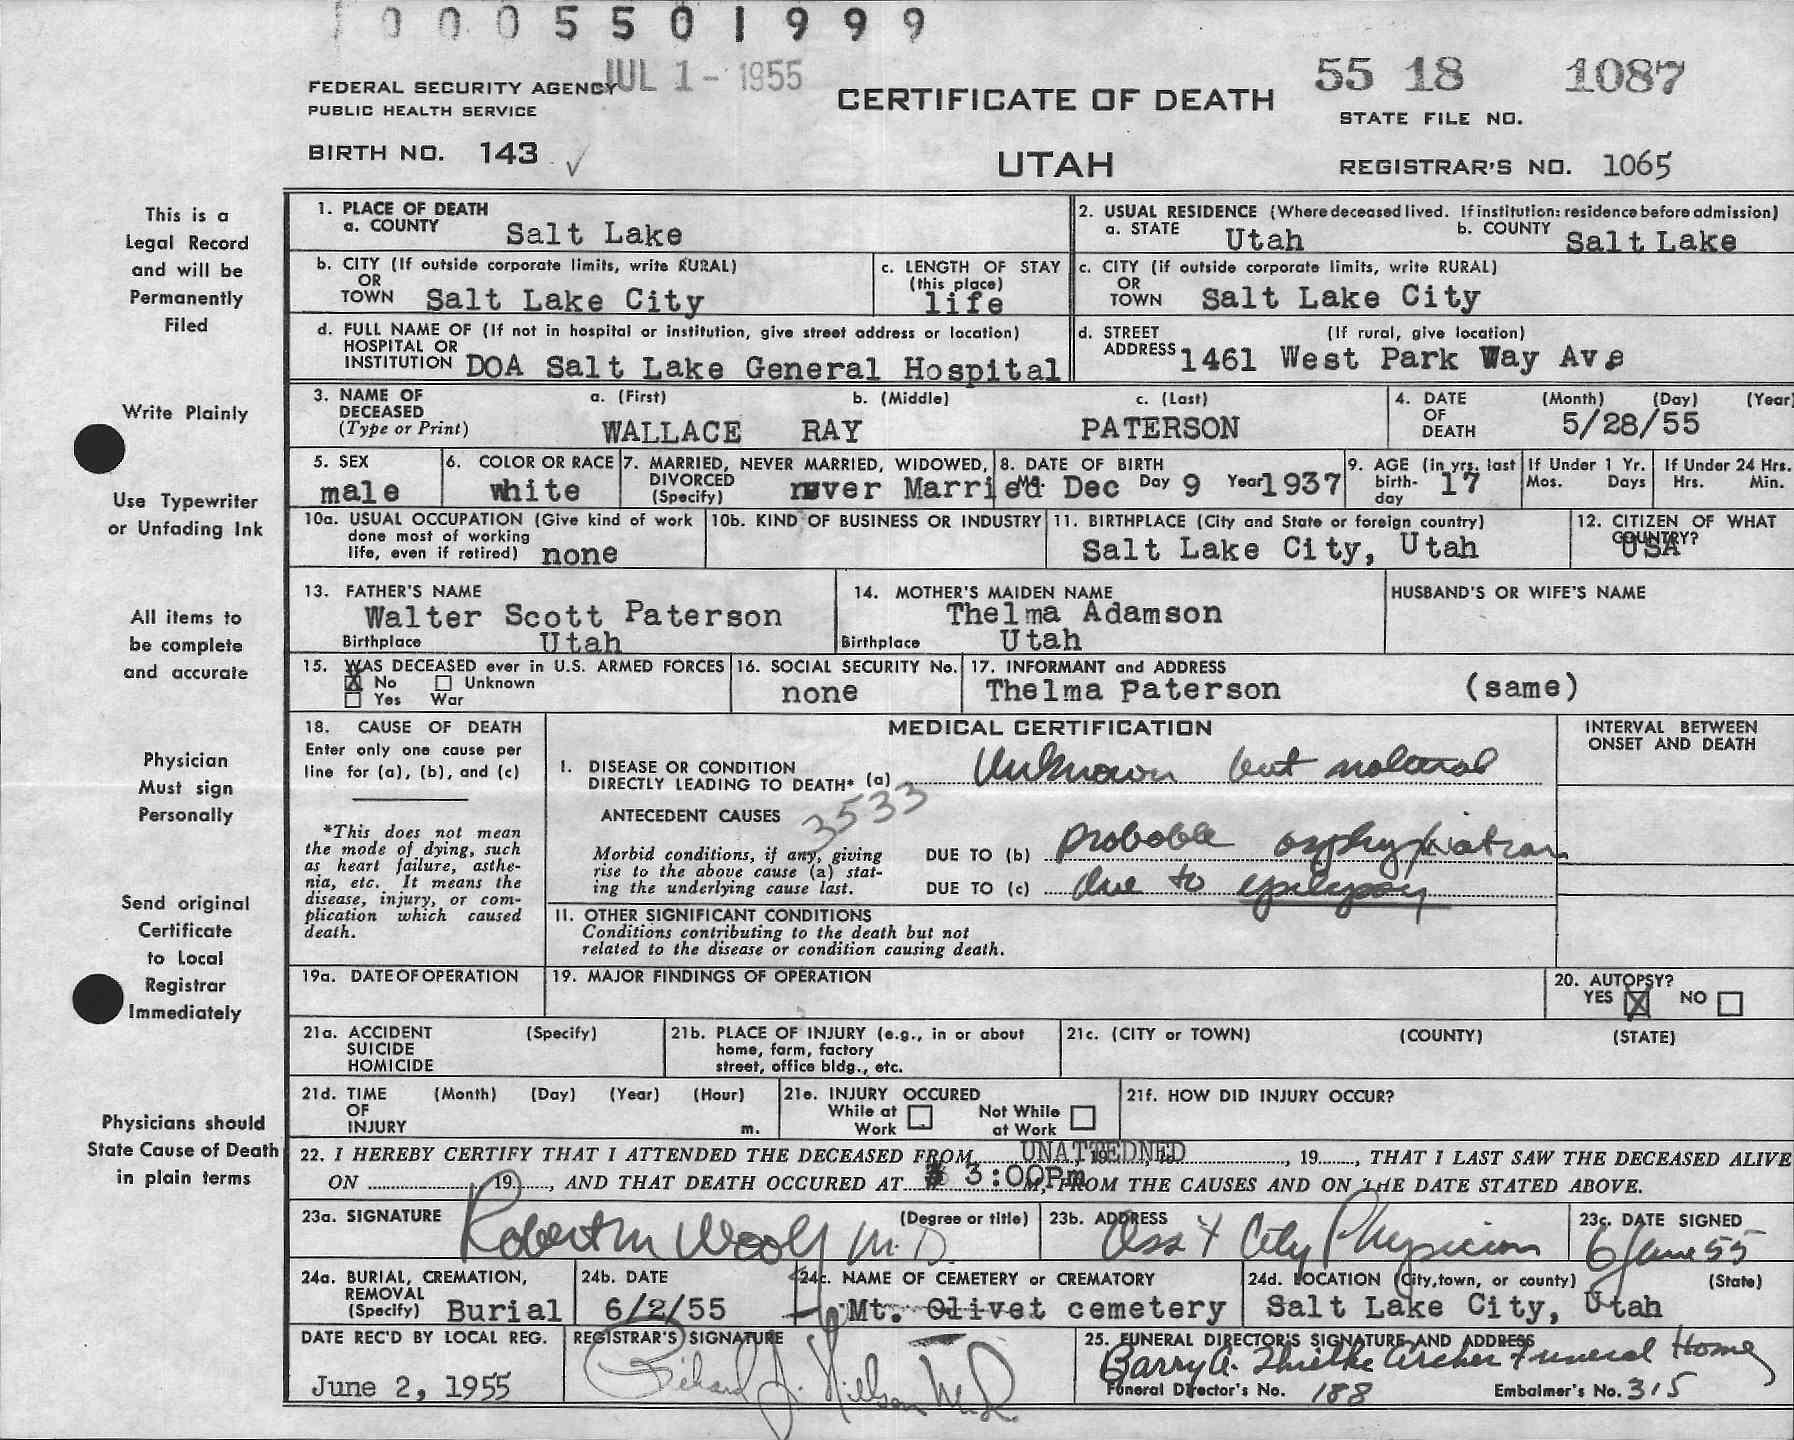 0005501999
FEDERAL SECURITY AGENCY JUL 1 - 1955
PUBLIC HEALTH SERVICE
CERTIFICATE OF DEATH
55 18 1087
STATE FILE NO.
BIRTH NO. 143 ✓
UTAH
REGISTRAR'S NO. 1065
This is a
Legal Record
and will be
Permanently
Filed
Write Plainly
Use Typewriter
or Unfading Ink
All items to
be complete
and accurate
Physician
Must sign
Personally
Send original
Certificate
to Local
Registrar
Immediately
Physicians should
State Cause of Death
in plain terms
1. PLACE OF DEATH
a. COUNTY Salt Lake
2. USUAL RESIDENCE (Where deceased lived. If institution: residence before admission)
a. STATE Utah b. COUNTY Salt Lake
b. CITY (If outside corporate limits, write RURAL)
OR
TOWN Salt Lake City
c. LENGTH OF STAY
(this place)
life
c. CITY (if outside corporate limits, write RURAL)
OR
TOWN Salt Lake City
d. FULL NAME OF (If not in hospital or institution, give street address or location)
HOSPITAL OR
INSTITUTION DOA Salt Lake General Hospital
d. STREET (If rural, give location)
ADDRESS 1461 West Park Way Ave
3. NAME OF a. (First) b. (Middle) c. (Last)
DECEASED
(Type or Print) WALLACE RAY PATERSON
4. DATE (Month) (Day) (Year)
OF
DEATH 5/28/55
5. SEX
male
6. COLOR OR RACE
white
7. MARRIED, NEVER MARRIED, WIDOWED,
DIVORCED
(Specify) never Married
8. DATE OF BIRTH
Mo. Dec Day 9 Year 1937
9. AGE (in yrs. last
birth-
day 17
If Under 1 Yr.
Mos. Days
If Under 24 Hrs.
Hrs. Min.
10a. USUAL OCCUPATION (Give kind of work
done most of working
life, even if retired) none
10b. KIND OF BUSINESS OR INDUSTRY
11. BIRTHPLACE (City and State or foreign country)
Salt Lake City, Utah
12. CITIZEN OF WHAT
COUNTRY?
USA
13. FATHER'S NAME
Walter Scott Paterson
Birthplace Utah
14. MOTHER'S MAIDEN NAME
Thelma Adamson
Birthplace Utah
HUSBAND'S OR WIFE'S NAME
15. WAS DECEASED ever in U.S. ARMED FORCES
X No Unknown
Yes War
16. SOCIAL SECURITY No.
none
17. INFORMANT and ADDRESS
Thelma Paterson (same)
18. CAUSE OF DEATH
Enter only one cause per
line for (a), (b), and (c)
*This does not mean
the mode of dying, such
as heart failure, asthe-
nia, etc. It means the
disease, injury, or com-
plication which caused
death.
MEDICAL CERTIFICATION
INTERVAL BETWEEN
ONSET AND DEATH
I. DISEASE OR CONDITION
DIRECTLY LEADING TO DEATH* (a) Unknown but natural
ANTECEDENT CAUSES 3533
Morbid conditions, if any, giving
rise to the above cause (a) stat-
ing the underlying cause last.
DUE TO (b) Probable asphyxiation
DUE TO (c) due to epilepsy
II. OTHER SIGNIFICANT CONDITIONS
Conditions contributing to the death but not
related to the disease or condition causing death.
19a. DATE OF OPERATION
19. MAJOR FINDINGS OF OPERATION
20. AUTOPSY?
YES X NO
21a. ACCIDENT (Specify)
SUICIDE
HOMICIDE
21b. PLACE OF INJURY (e.g., in or about
home, farm, factory
street, office bldg., etc.
21c. (CITY or TOWN) (COUNTY) (STATE)
21d. TIME (Month) (Day) (Year) (Hour)
OF
INJURY m.
21e. INJURY OCCURED
While at Work
Not While at Work
21f. HOW DID INJURY OCCUR?
22. I HEREBY CERTIFY THAT I ATTENDED THE DECEASED FROM UNATTEDNED, 19, to, 19, THAT I LAST SAW THE DECEASED ALIVE
ON, 19, AND THAT DEATH OCCURED AT 3:00Pm M, FROM THE CAUSES AND ON THE DATE STATED ABOVE.
23a. SIGNATURE (Degree or title)
Robert M Woolf M.D.
23b. ADDRESS
Asst City Physician
23c. DATE SIGNED
6 June 55
24a. BURIAL, CREMATION,
REMOVAL
(Specify) Burial
24b. DATE
6/2/55
24c. NAME OF CEMETERY or CREMATORY
Mt. Olivet cemetery
24d. LOCATION (City, town, or county) (State)
Salt Lake City, Utah
DATE REC'D BY LOCAL REG.
June 2, 1955
REGISTRAR'S SIGNATURE
Richard J. Nielsen M.D.
25. FUNERAL DIRECTOR'S SIGNATURE AND ADDRESS
Barry A. Thielke Archer Funeral Home
Funeral Director's No. 188 Embalmer's No. 315